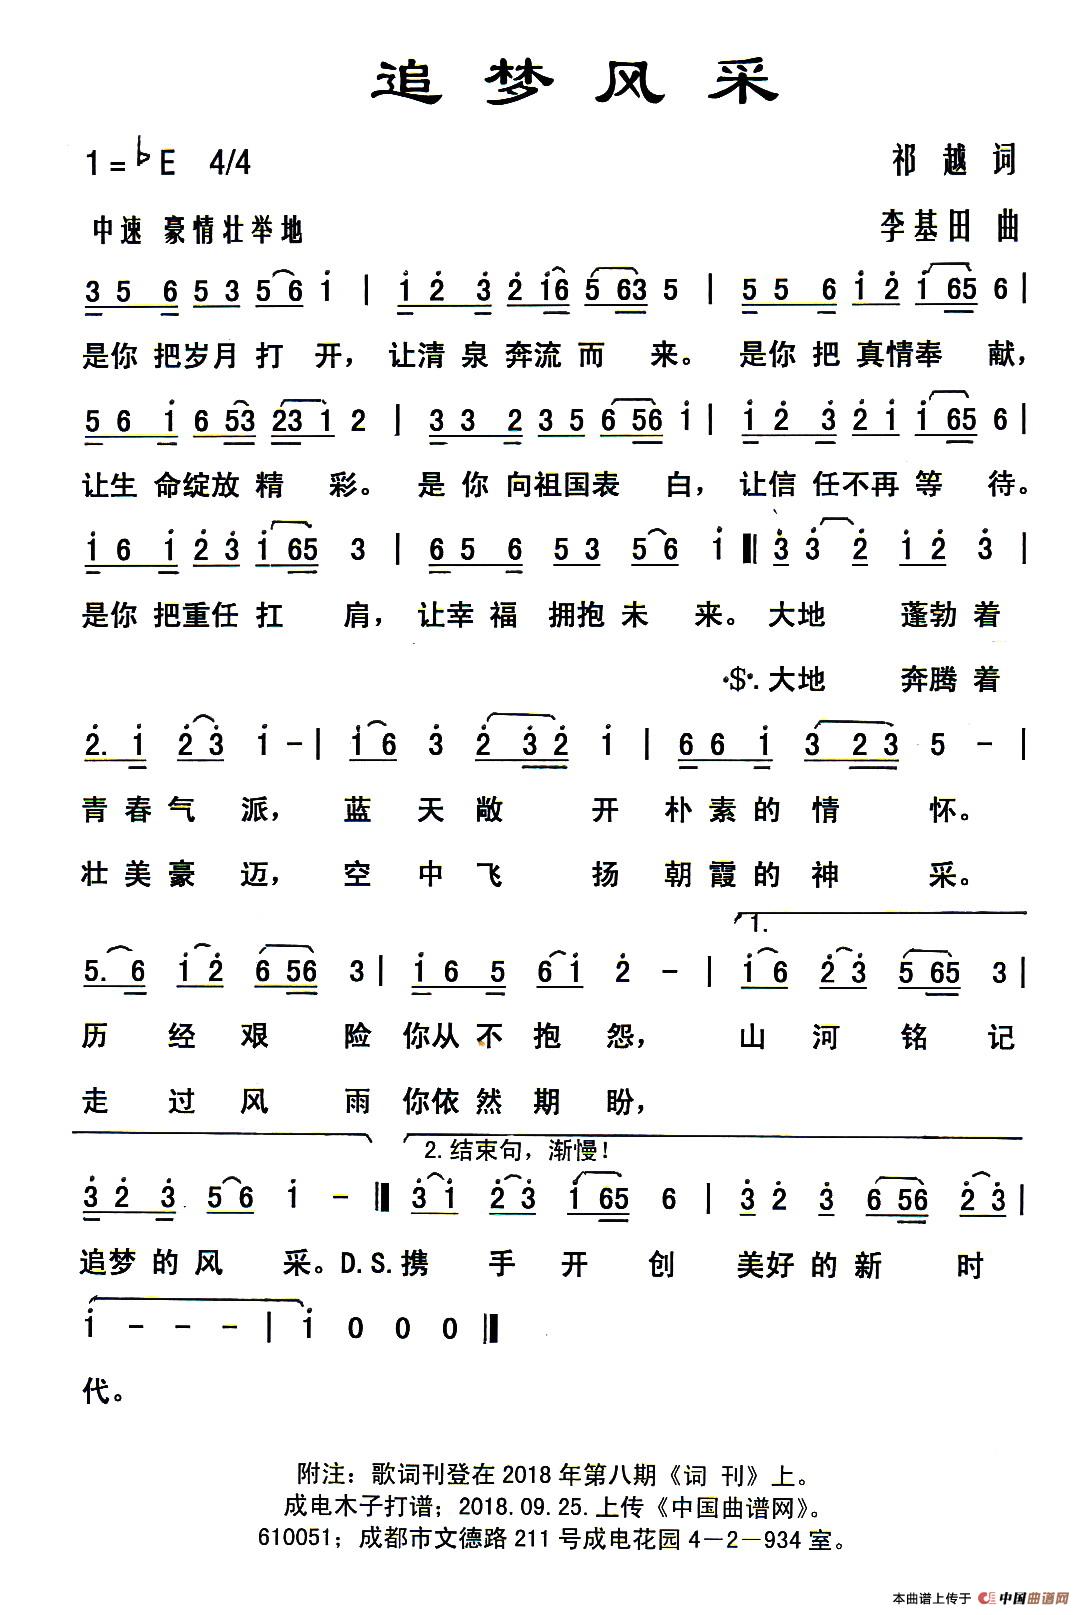 追梦风采
1=♭E 4/4 祁越词
中速 豪情壮举地 李基田 曲
3 5 6 5 3 5 6 i | i 2 3 2 i6 5 63 5 | 5 5 6 i 2 i 65 6 |
是你 把岁月 打 开，让清 泉 奔流 而 来。 是你 把 真情奉 献，
5 6 i 6 53 23 1 2 | 3 3 2 3 5 6 56 i | i 2 3 2 i i 65 6 |
让生 命绽放 精 彩。 是 你 向祖国表 白，让信 任不再 等 待。
i 6 i 2 3 i 65 3 | 6 5 6 5 3 5 6 i ‖ 3 3 2 i 2 3 |
是你 把重任 扛 肩，让幸 福 拥抱 未 来。大地 蓬勃 着
·$·.大地 奔腾 着
2. i 2 3 i - | i 6 3 2 32 i | 6 6 i 3 23 5 - |
青 春 气 派， 蓝 天 敞 开 朴 素 的 情 怀。
壮 美 豪 迈， 空 中 飞 扬 朝 霞 的 神 采。
1.
5. 6 i 2 6 56 3 | i 6 5 6 i 2 - | i 6 2 3 5 65 3 |
历 经 艰 险 你从 不 抱 怨， 山 河 铭 记
走 过 风 雨 你依 然 期 盼，
2.结束句，渐慢！
3 2 3 5 6 i - ‖ 3 i 2 3 i 65 6 | 3 2 3 6 56 2 3 |
追梦 的 风 采。D.S.携 手 开 创 美好 的 新 时
i - - - | i 0 0 0 ‖
代。
附注：歌词刊登在 2018 年第八期《词 刊》上。
成电木子打谱；2018.09.25.上传《中国曲谱网》。
610051；成都市文德路 211 号成电花园 4－2－934 室。
本曲谱上传于 中国曲谱网